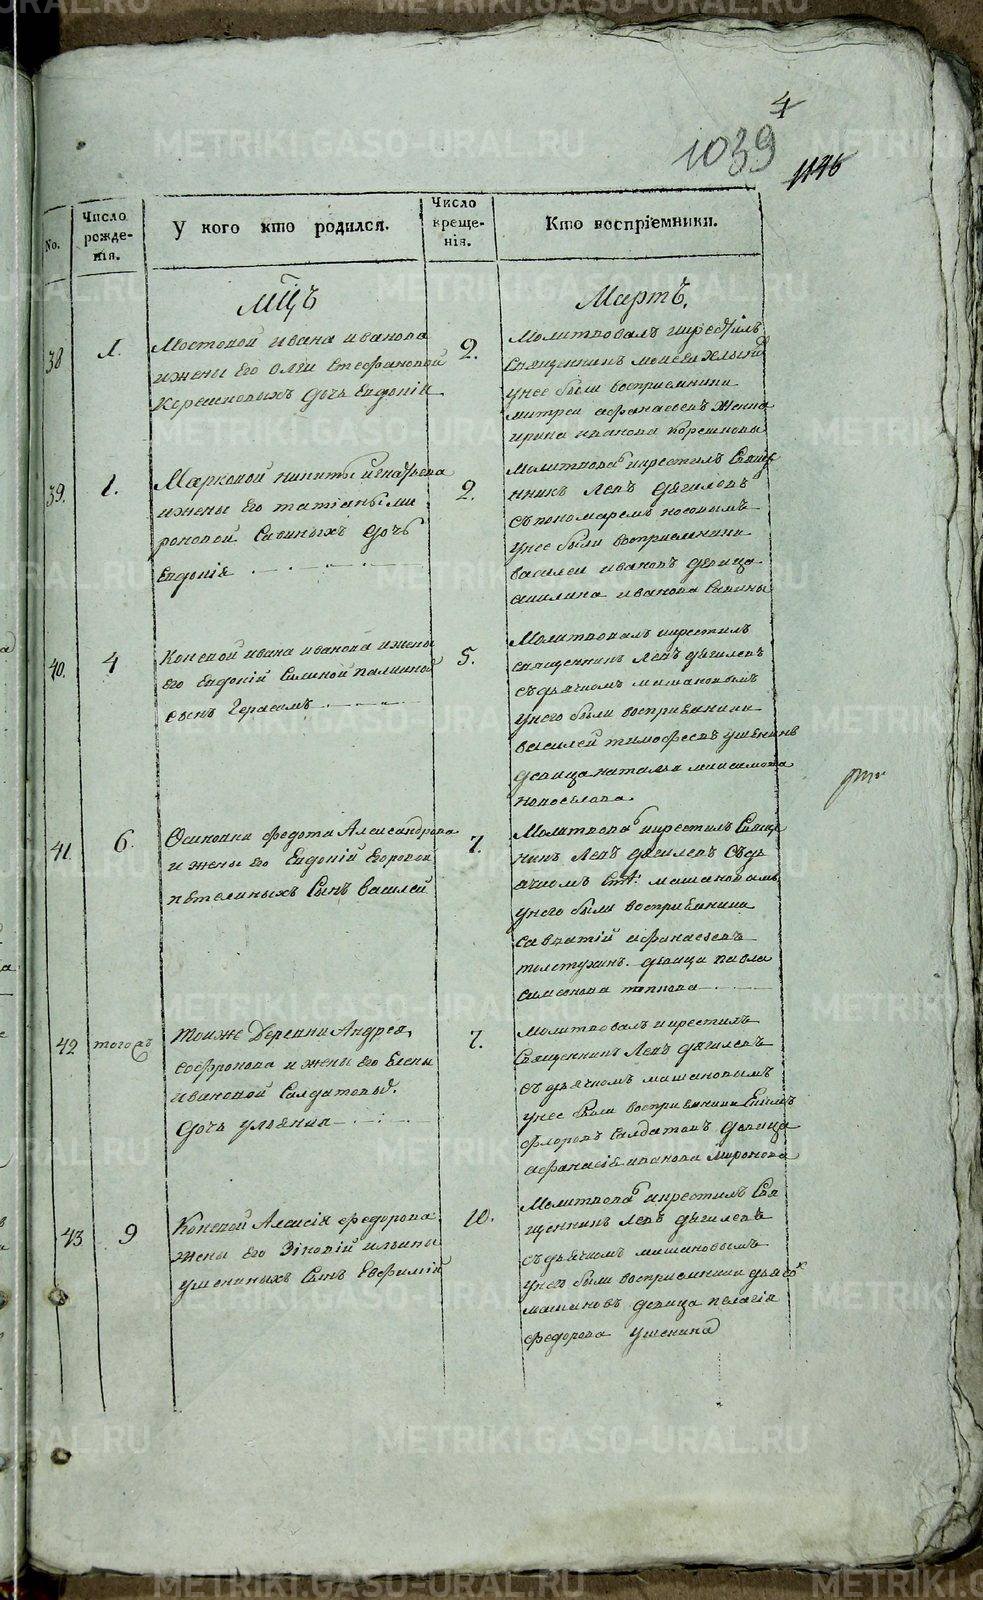 METRIKI.GASO-URAL.RU
4
1039
1146
No.
Число рожде- нія.
У кого кто родился.
Число креще- нія.
Кто воспріемники.
Мцъ
Мартъ,
38
1.
Мостовой ивана иванова
ижены Его Олги Стефановой
Корешковыхъ дочь Евдокія
2.
Молитвовалъ икрестилъ
Священникъ
унее были восприемники
митреи афанасьевъ женка
ирина иванова Корешковы
39.
1.
Марковой никиты игнатьева
ижены Его татіаны ми
роновой Савиныхъ дочь
Евдокія
2.
Молитвова икрестилъ Свяще
нникъ Левъ дягилевъ
съ пономаремъ носовымъ
унее были восприемники
василеи ивановъ девица
акилина иванова Савины
40.
4
Коневой ивана иванова ижены
Его Евдокіи
сынъ Герасимъ
5.
Молитвовалъ икрестилъ
священникъ Левъ дягилевъ
съ дьячкомъ машановымъ
унего были восприемники
василей тимофеевъ ушенинъ
девица наталья
новоселова.
41.
6.
Осиновки федота Александрова
и жены Его Евдокіи Егоровой
петелиныхъ Сынъ Василей
7.
Молитвова икрестилъ Свяще
никъ Левъ дягилевъ Съ дь
ячкомъ машановымъ
унего были восприемники
савватій афанасьевъ
толстухинъ. девица павла
симеонова топкова
42
тогожъ
тоиже Деревни Андрея
софронова и жены Его Елены
ивановой Салдатовы.
дочь ульяния
7.
Молитвовалъ икрестилъ
Священникъ Левъ дягилевъ
съ дьячкомъ машановымъ
унее были восприемники
флоровъ Салдатовъ девица
афанасія иванова Миронова
43
9
Коневой Алексія федорова
жены Его Зіновіи ильины
ушениныхъ Сынъ Евфимій
10.
Молитвова икрестилъ Свя
щенникъ Левъ дягилевъ
съ дьячкомъ машановымъ
унего были восприемники дьячо
машановъ девица пелагія
федорова ушенина